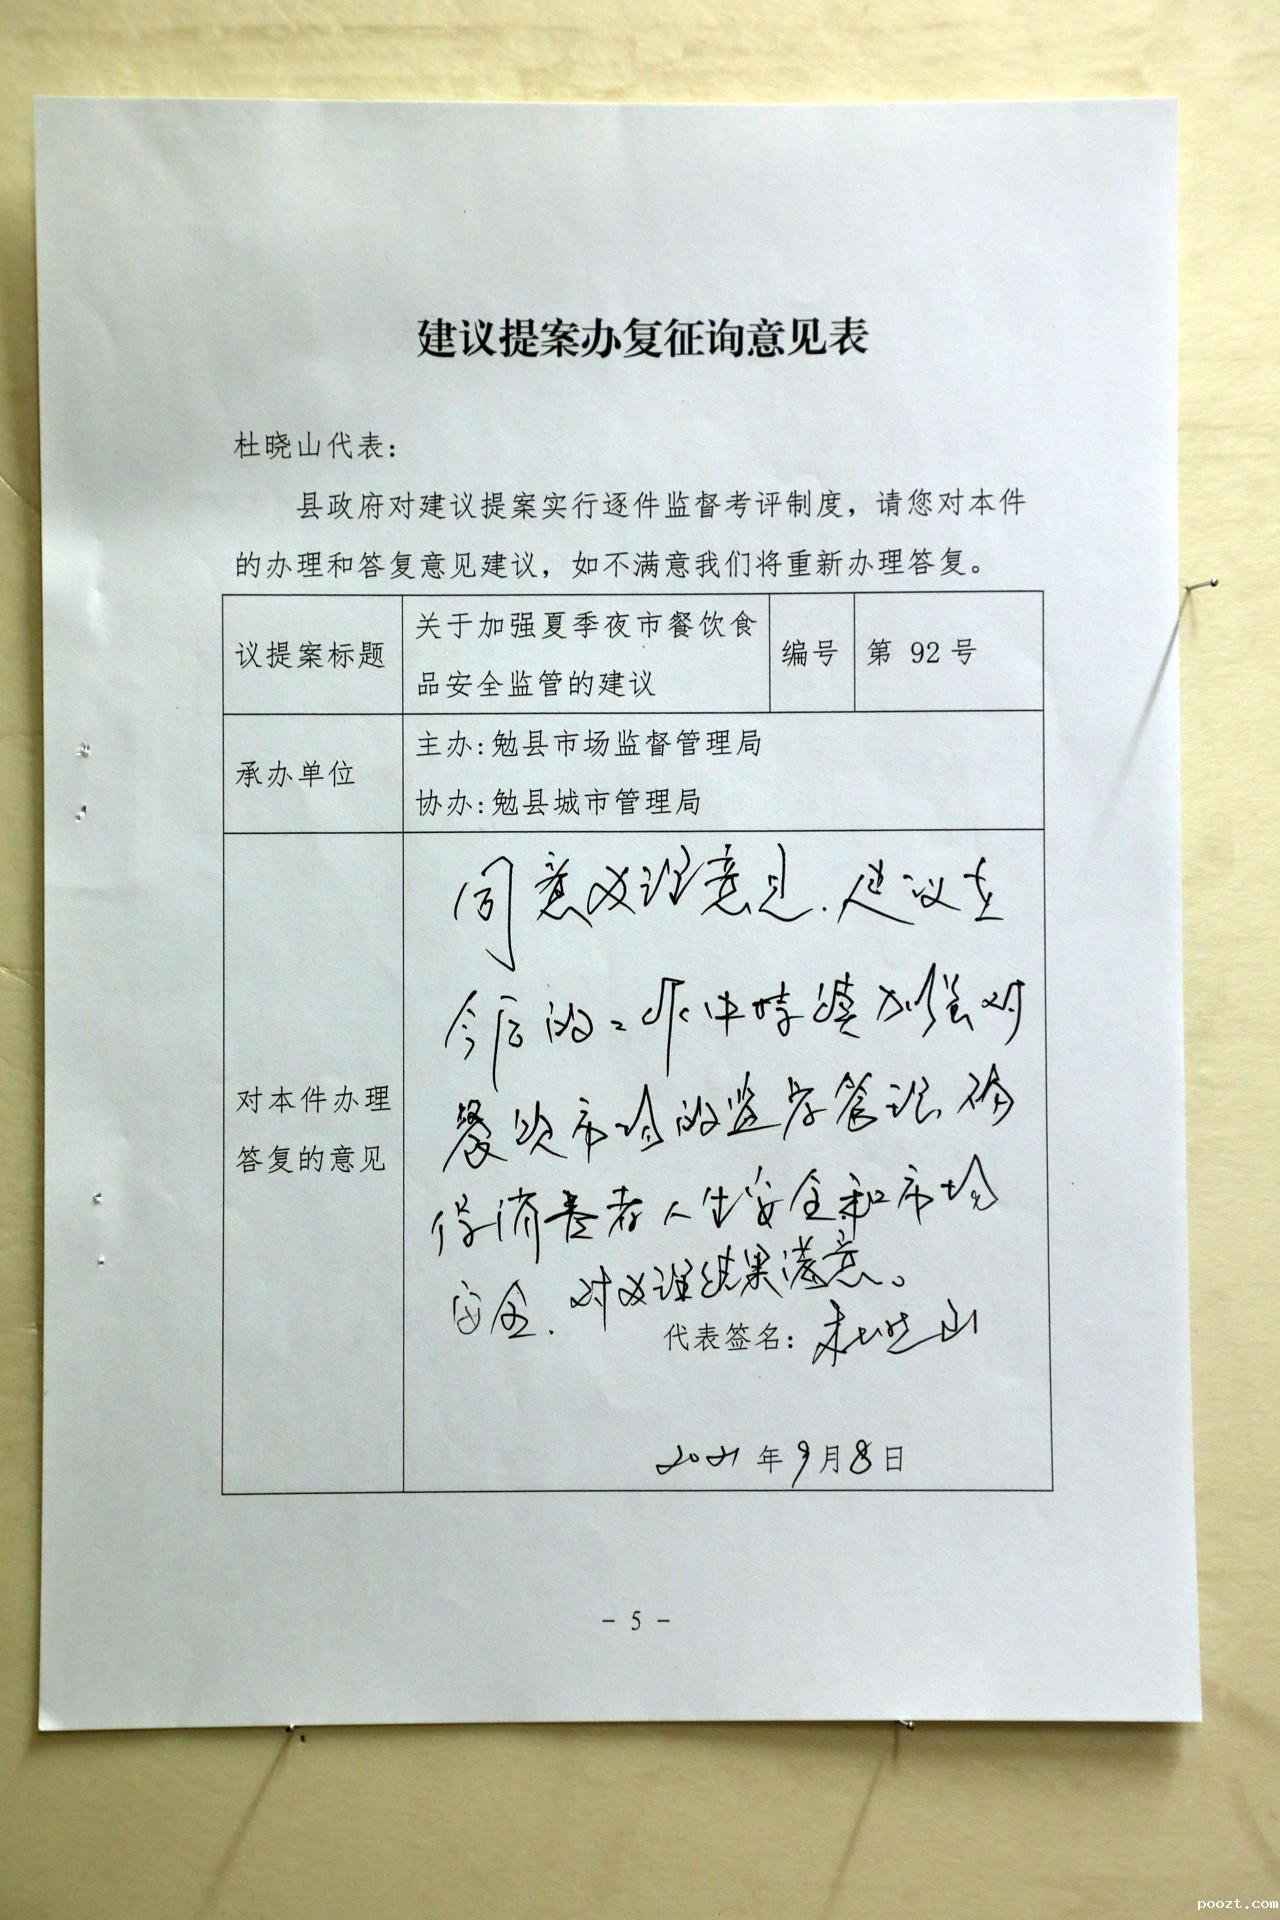 建议提案办复征询意见表
杜晓山代表：
县政府对建议提案实行逐件监督考评制度，请您对本件
的办理和答复意见建议，如不满意我们将重新办理答复。
议提案标题
关于加强夏季夜市餐饮食
品安全监管的建议
编号
第 92号
承办单位
主办:勉县市场监督管理局
协办:勉县城市管理局
对本件办理
答复的意见
同意办理意见.建议在
今后的工作中持续加强对
餐饮市场的监督管理.确
保消费者人生安全和市场
安全.对办理结果满意。
代表签名：杜晓山
2021年9月8日
- 5 -
poozt.com